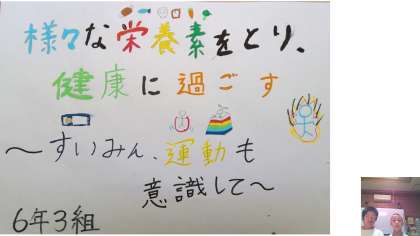 様々な栄養素をとり、
健康に過ごす
～すいみん、運動も
意識して～
6年3組